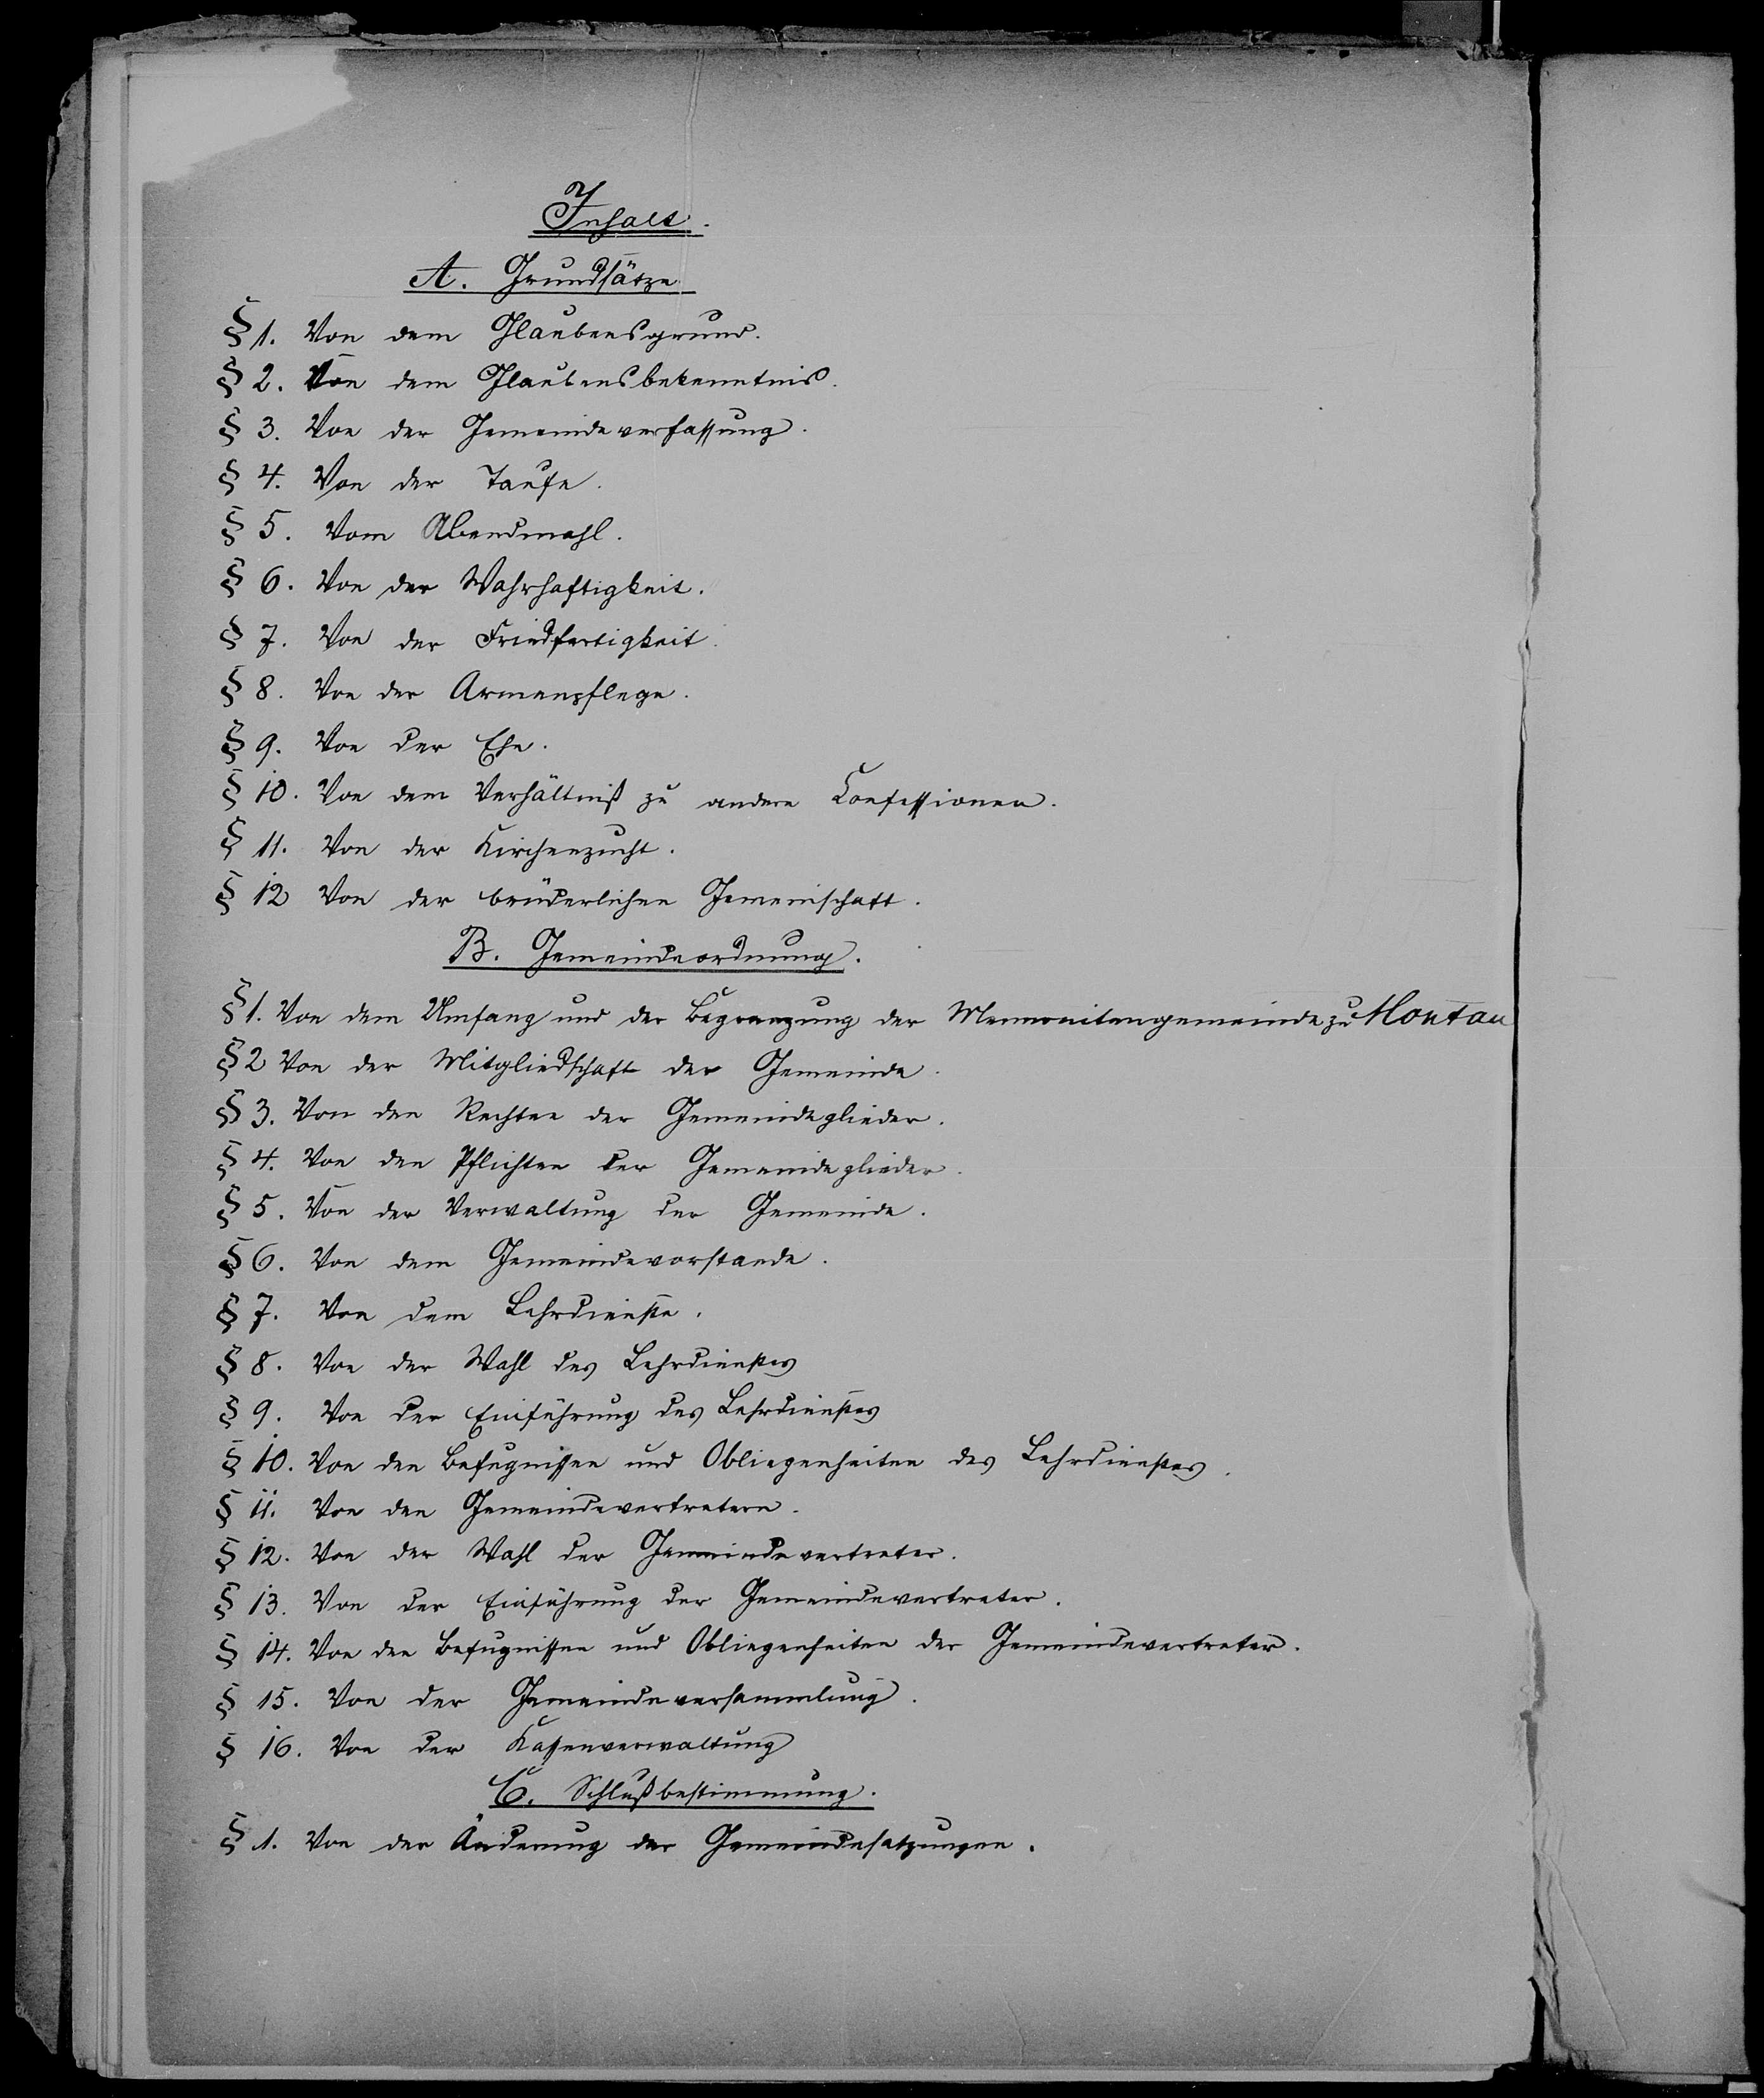 Inhalt.
A. Grundsätze
§ 1. Von dem Glaubensgrund.
§ 2. Von dem Glaubensbekenntnis.
§ 3. Von der Gemeindeverfassung.
§ 4. Von der Taufe.
§ 5. Vom Abendmahl.
§ 6. Von der Wahrhaftigkeit.
§ 7. Von der Friedfertigkeit.
§ 8. Von der Armenpflege.
§ 9. Von der Ehe.
§ 10. Von dem Verhältniß zu andern Confessionen.
§ 11. Von der Kirchenzucht.
§ 12 Von der brüderlichen Gemeinschaft.
B. Gemeindeordnung.
§ 1. Von dem Umfang und der Begrenzung der Mennonitengemeinde zu Montau
§ 2 Von der Mitgliedschaft der Gemeinde.
§ 3. Von den Rechten der Gemeindeglieder.
§ 4. Von den Pflichten der Gemeindeglieder.
§ 5. Von der Verwaltung der Gemeinde.
§ 6. Von dem Gemeindevorstande.
§ 7. Von dem Lehrdienste.
§ 8. Von der Wahl des Lehrdienstes
§ 9. Von der Einführung des Lehrdienstes
§ 10. Von den Befugnissen und Obliegenheiten des Lehrdienstes.
§ 11. Von den Gemeindevertretern.
§ 12. Von der Wahl der Gemeindevertreter.
§ 13. Von der Einführung der Gemeindevertreter.
§ 14. Von den Befugnissen und Obliegenheiten der Gemeindevertreter.
§ 15. Von der Gemeindeversammlung.
§ 16. Von der Kassenverwaltung
C. Schlußbestimmung.
§ 1. Von der Änderung der Gemeindesatzungen.